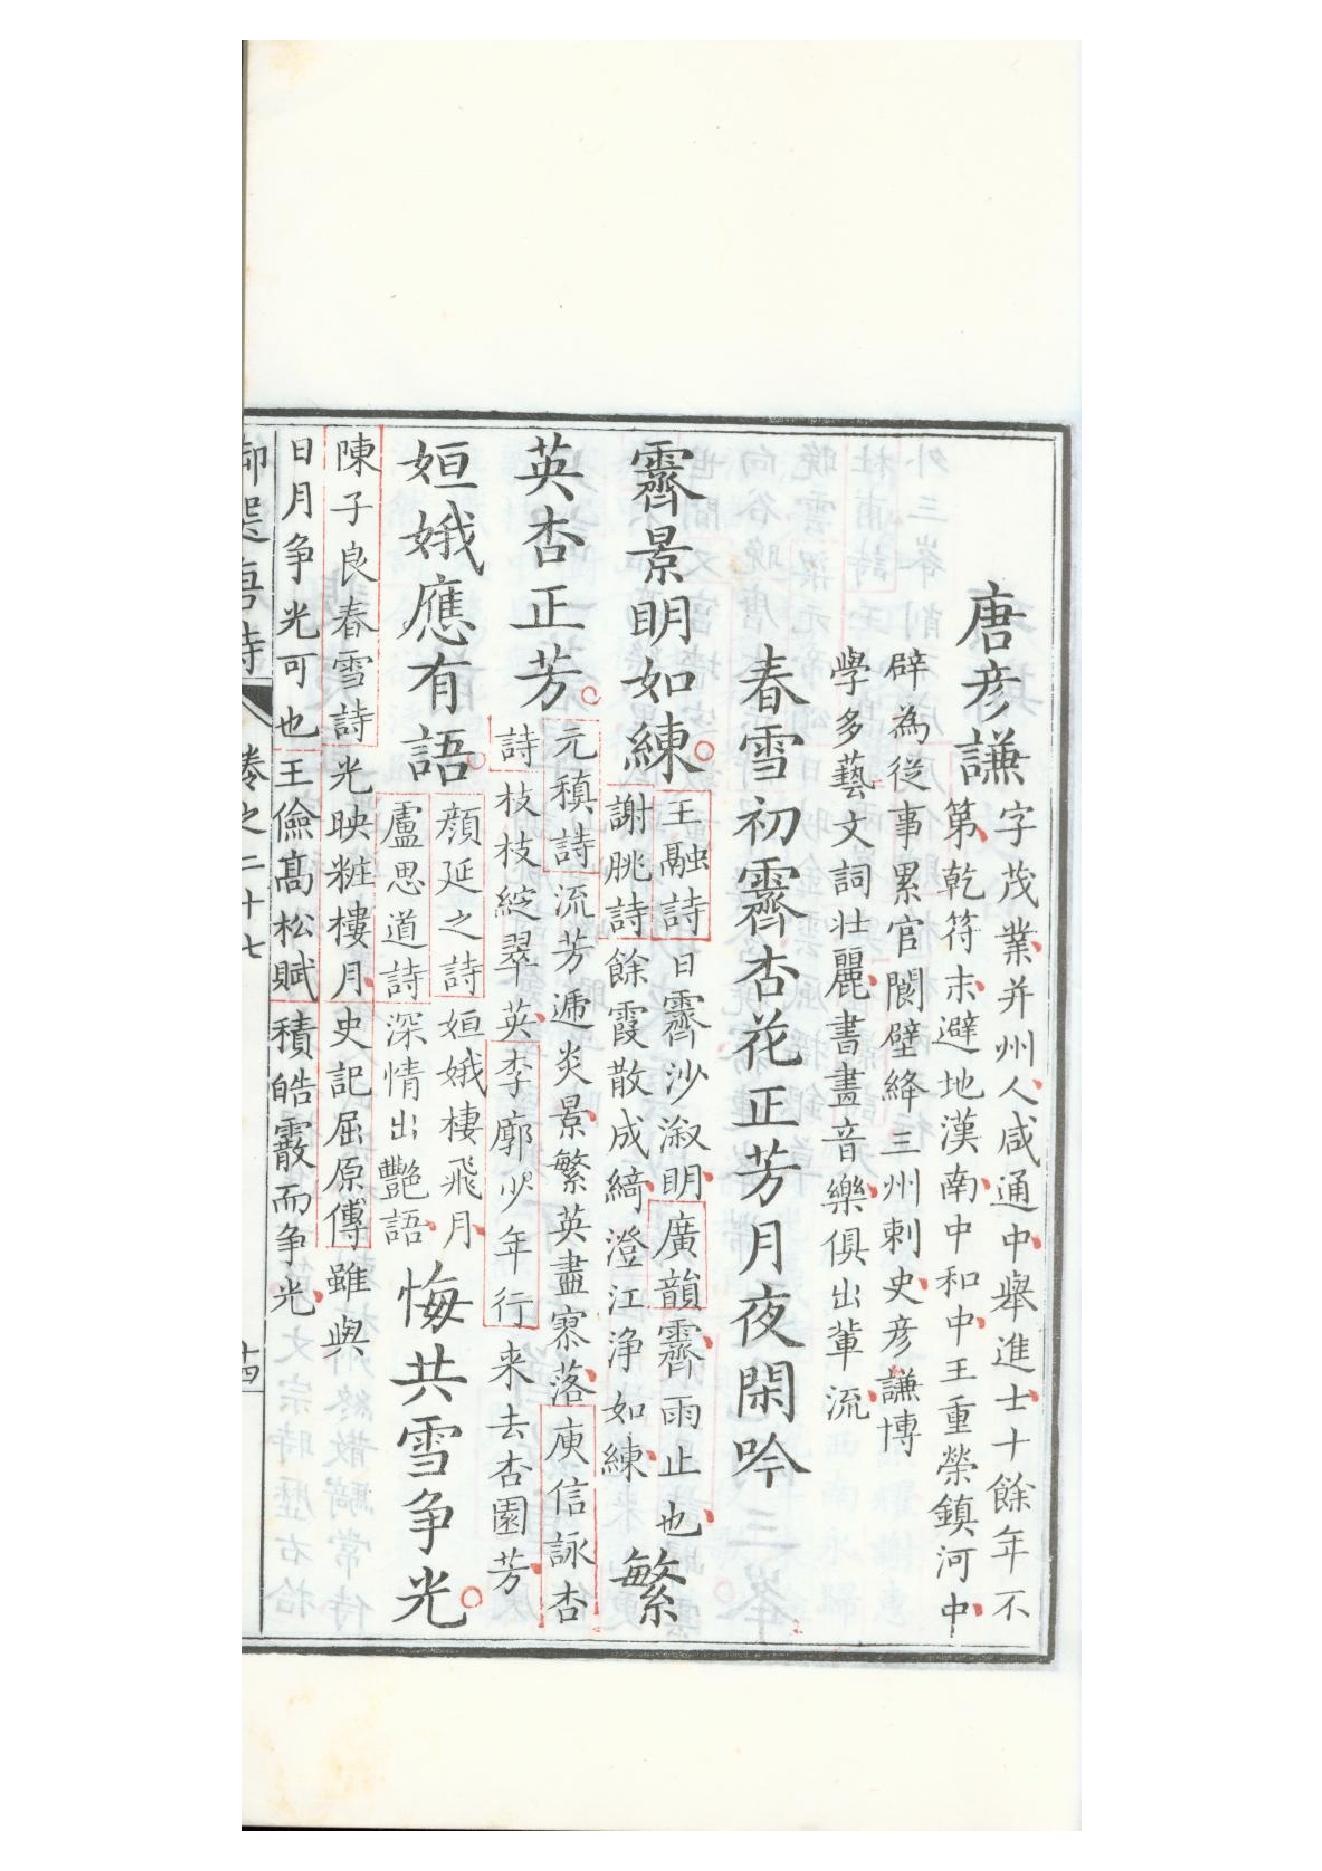 唐彦謙字茂業并州人咸通中舉進士十餘年不
第乾符末避地漢南中和中王重榮鎮河中
辟為從事累官閬壁絳三州刺史彦謙博
學多藝文詞壯麗書畫音樂俱出輩流
春雪初霽杏花正芳月夜閑吟
霽景明如練王融詩日霽沙溆明廣韻霽雨止也
謝朓詩餘霞散成綺澄江浄如練繁
英杏正芳元稹詩流芳遞炎景繁英盡寥落庾信詠杏
詩枝枝綻翠英李廓少年行来去杏園芳
姮娥應有語顔延之詩姮娥棲飛月
盧思道詩深情出艷語悔共雪争光
陳子良春雪詩光映粧樓月史記屈原傳雖與
日月争光可也王儉高松賦積皓霰而争光
御選唐詩 卷之二十七 十四